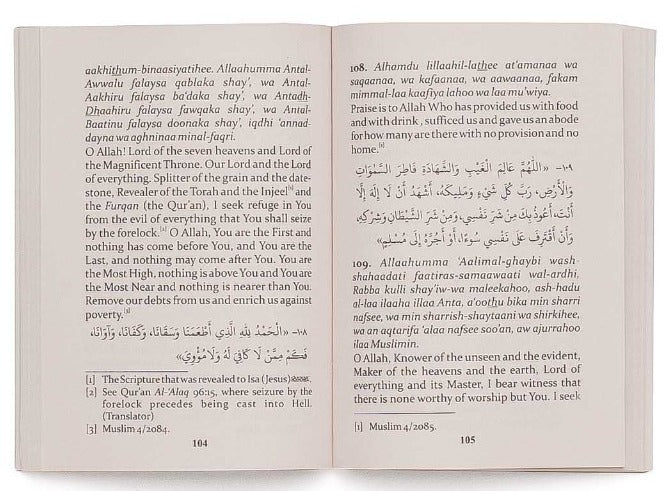 aakhithum-binaasiyatihee. Allaahumma Antal-
Awwalu falaysa qablaka shay', wa Antal-
Aakhiru falaysa ba'daka shay', wa Antadh-
Dhaahiru falaysa fawqaka shay', wa Antal-
Baatinu falaysa doonaka shay', iqdhi 'annad-
dayna wa aghninaa minal-faqri.
O Allah! Lord of the seven heavens and Lord of
the Magnificent Throne. Our Lord and the Lord
of everything. Splitter of the grain and the date-
stone, Revealer of the Torah and the Injeel[1] and
the Furqan (the Qur'an), I seek refuge in You
from the evil of everything that You shall seize
by the forelock.[2] O Allah, You are the First and
nothing has come before You, and You are the
Last, and nothing may come after You. You are
the Most High, nothing is above You and You are
the Most Near and nothing is nearer than You.
Remove our debts from us and enrich us against
poverty.[3]
١٠٨- «الْحَمْدُ لِلَّهِ الَّذِي أَطْعَمَنَا وَسَقَانَا، وَكَفَانَا، وَآوَانَا،
فَكَمْ مِمَّنْ لَا كَافِيَ لَهُ وَلَا مُؤْوِيَ»
[1] The Scripture that was revealed to Isa (Jesus)
[2] See Qur'an Al-'Alaq 96:15, where seizure by the
forelock precedes being cast into Hell.
(Translator)
[3] Muslim 4/2084.
104
108. Alhamdu lillaahil-lathee at'amanaa wa
saqaanaa, wa kafaanaa, wa aawaanaa, fakam
mimmal-laa kaafiya lahoo wa laa mu'wiya.
Praise is to Allah Who has provided us with food
and with drink, sufficed us and gave us an abode
for how many are there with no provision and no
home.[1]
١٠٩- «اللَّهُمَّ عَالِمَ الْغَيْبِ وَالشَّهَادَةِ فَاطِرَ السَّمَوَاتِ
وَالْأَرْضِ، رَبَّ كُلِّ شَيْءٍ وَمَلِيكَهُ، أَشْهَدُ أَنْ لَا إِلَهَ إِلَّا
أَنْتَ، أَعُوذُ بِكَ مِنْ شَرِّ نَفْسِي، وَمِنْ شَرِّ الشَّيْطَانِ وَشِرْكِهِ،
وَأَنْ أَقْتَرِفَ عَلَى نَفْسِي سُوءًا، أَوْ أَجُرَّهُ إِلَى مُسْلِمٍ»
109. Allaahumma 'Aalimal-ghaybi wash-
shahaadati faatiras-samaawaati wal-ardhi,
Rabba kulli shay'iw-wa maleekahoo, ash-hadu
al-laa ilaaha illaa Anta, a'oothu bika min sharri
nafsee, wa min sharrish-shaytaani wa shirkihee,
wa an aqtarifa 'alaa nafsee soo'an, aw ajurrahoo
ilaa Muslimin.
O Allah, Knower of the unseen and the evident,
Maker of the heavens and the earth, Lord of
everything and its Master, I bear witness that
there is none worthy of worship but You. I seek
[1] Muslim 4/2085.
105